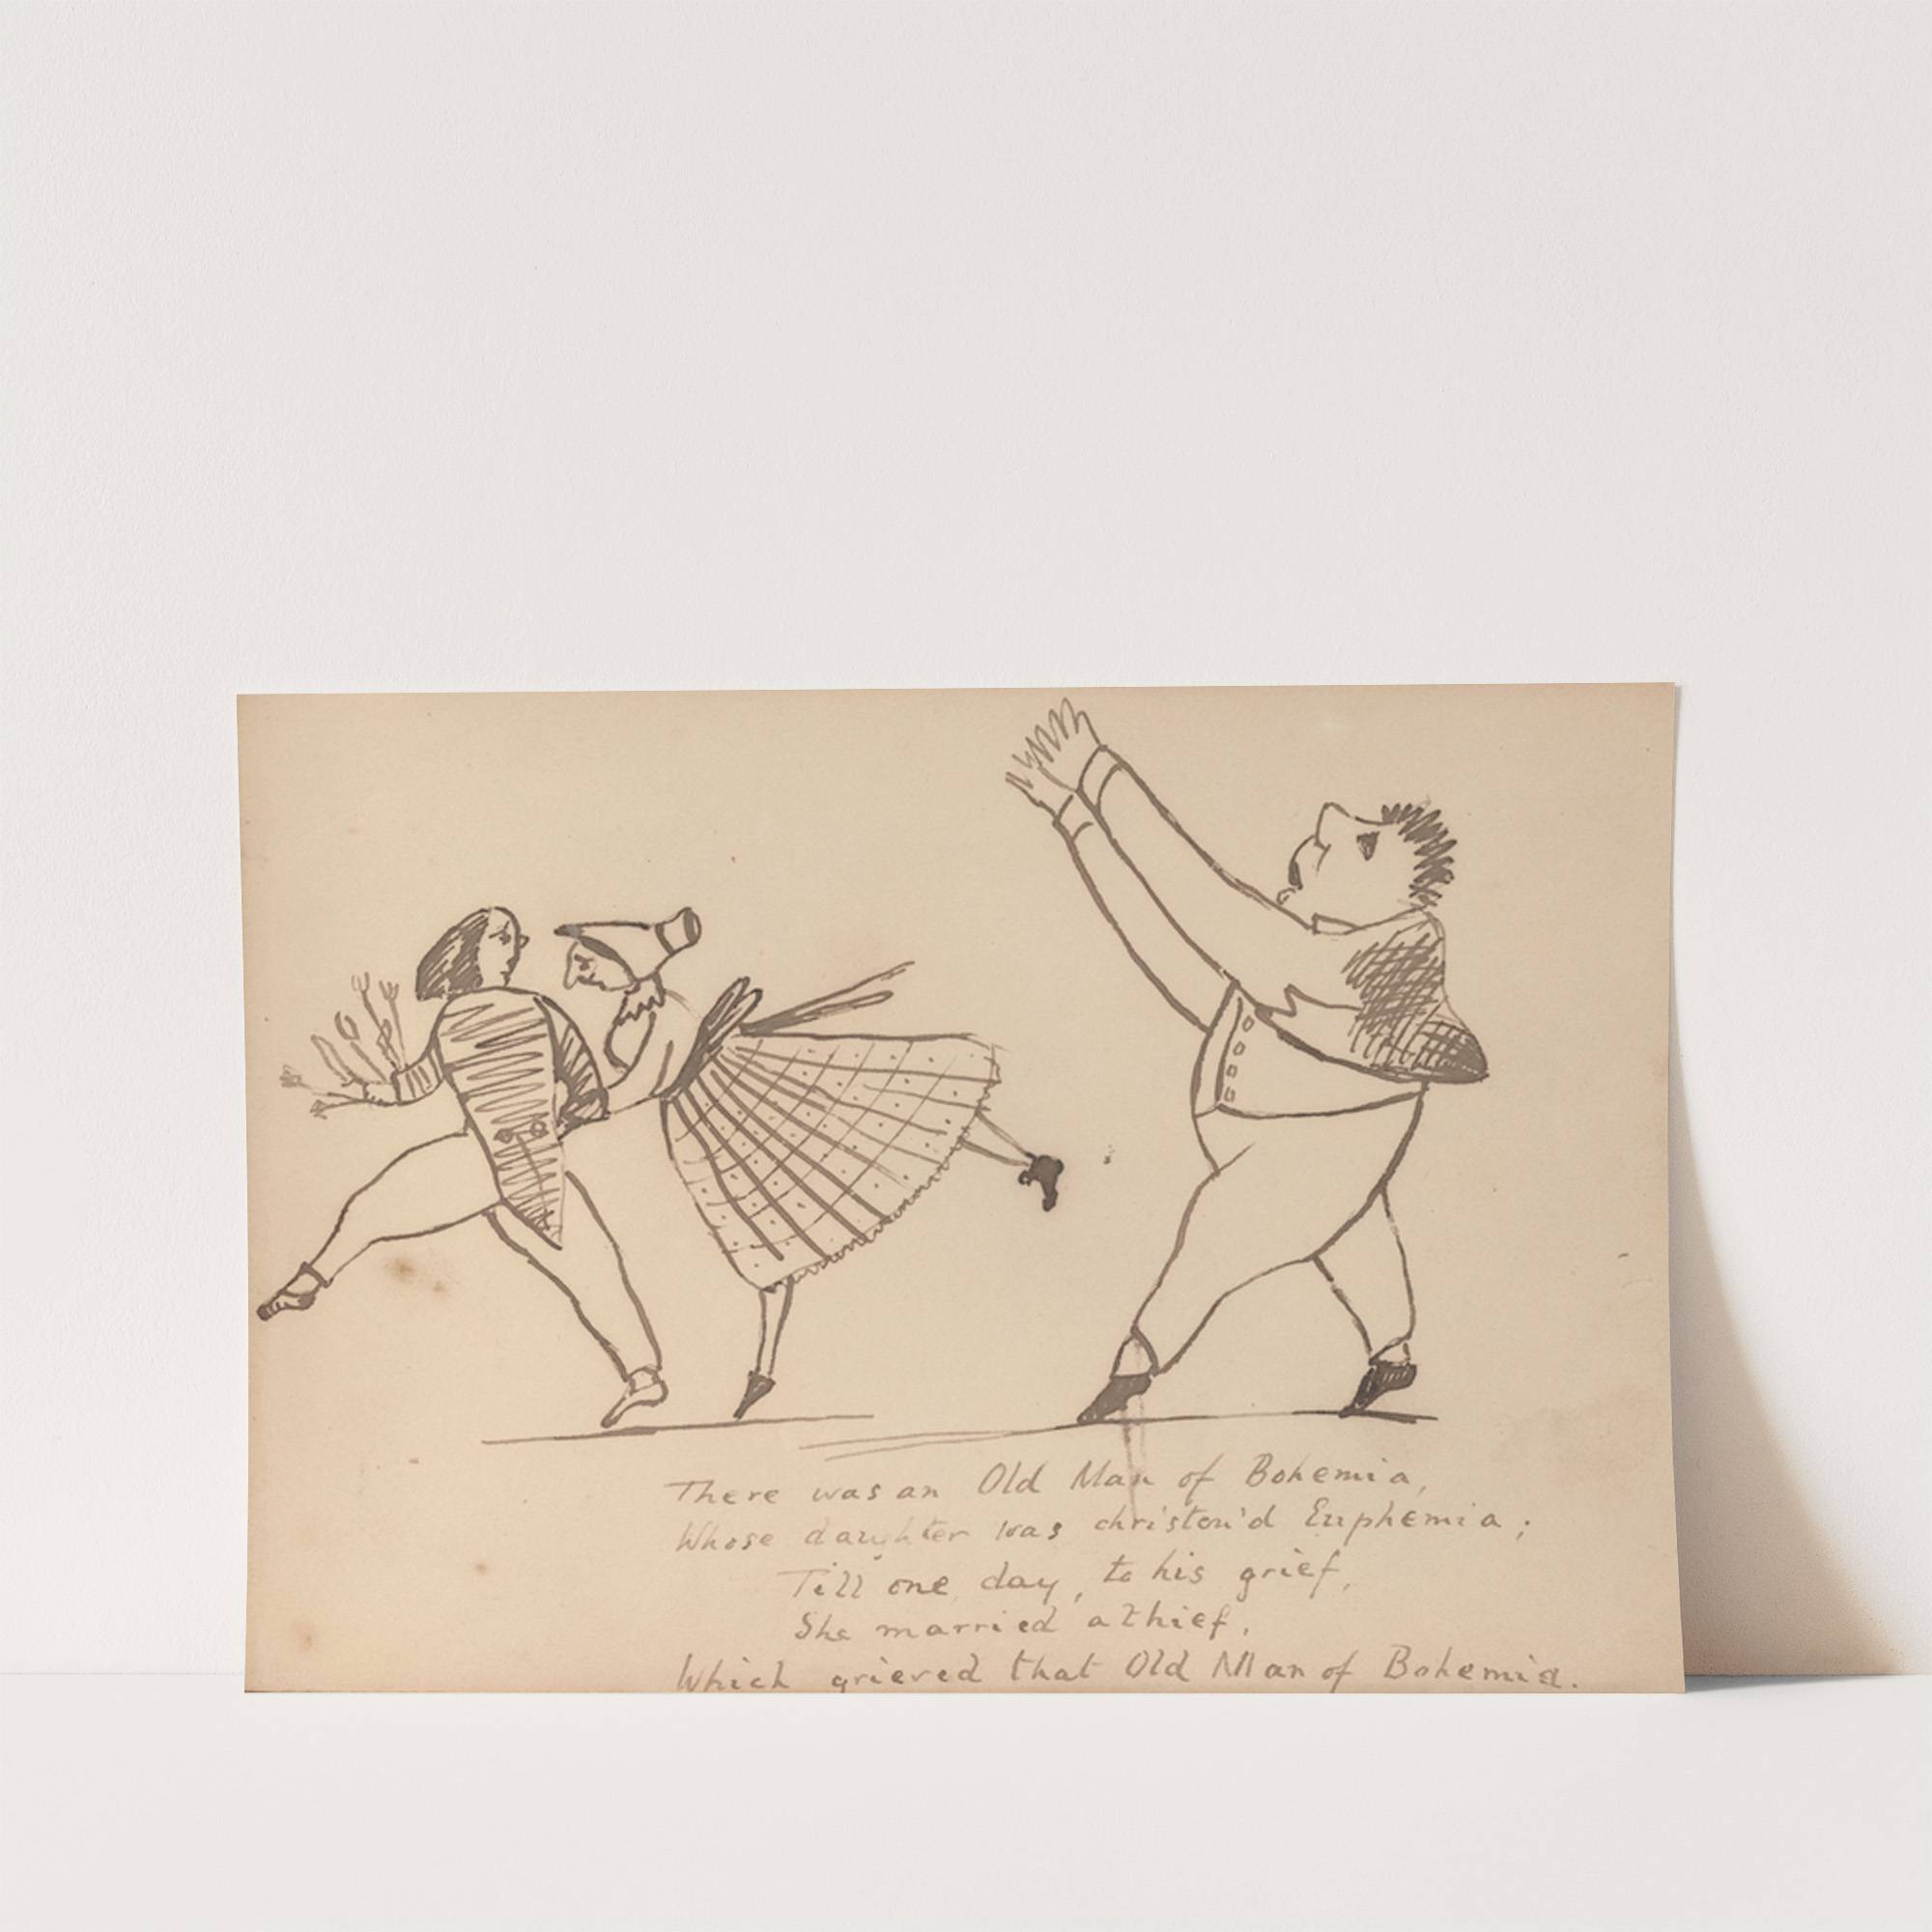 There was an Old Man of Bohemia,
Whose daughter was christen'd Euphemia;
Till one day, to his grief,
She married a thief,
Which grieved that Old Man of Bohemia.